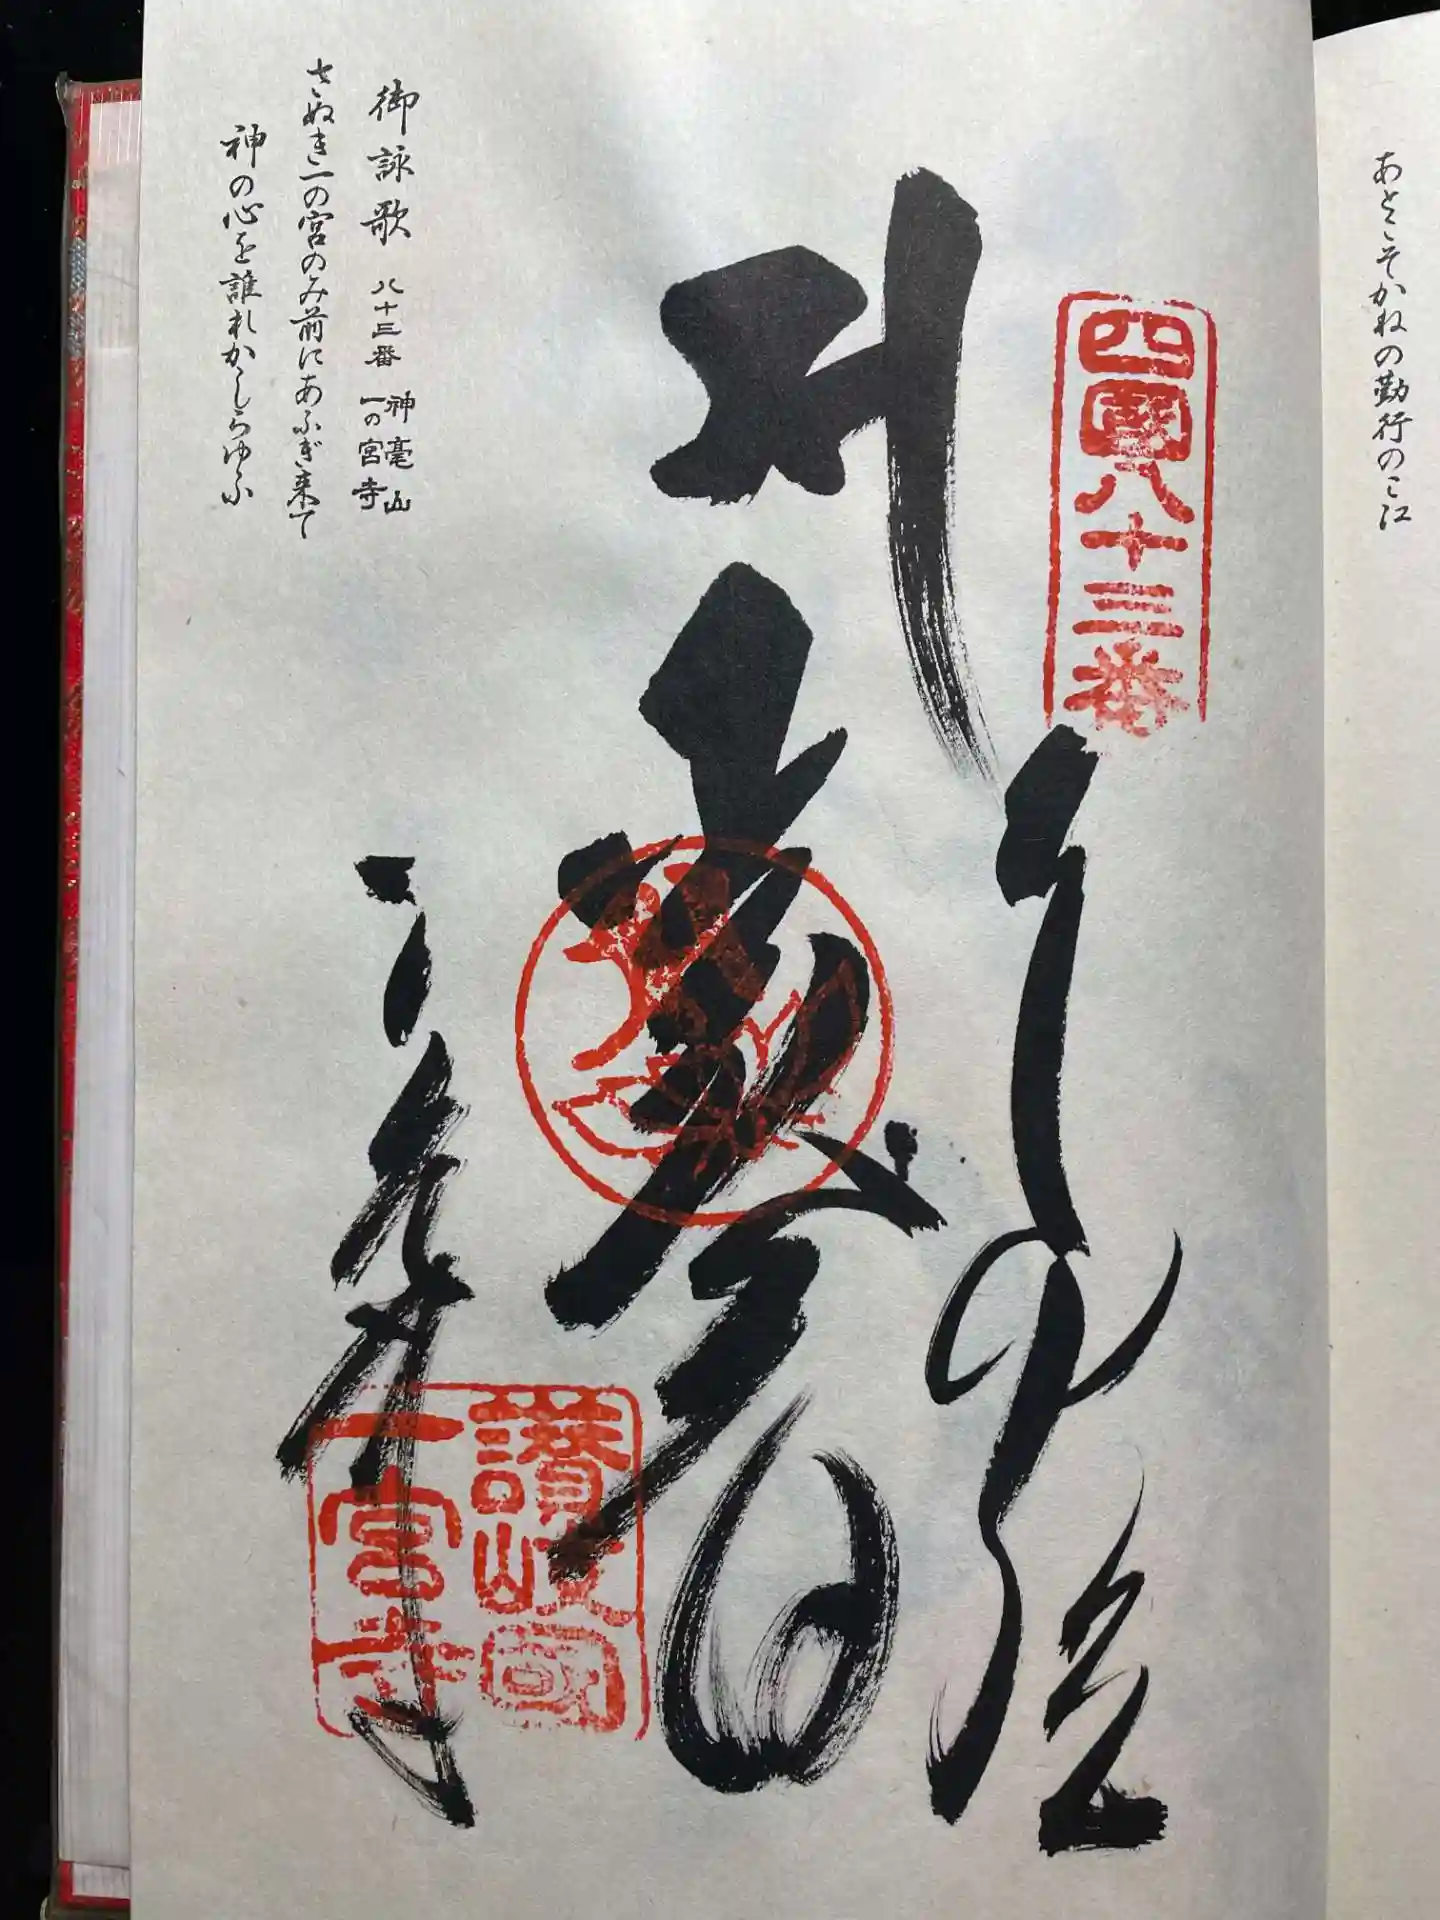 あとこそかねの勤行のこゑ
四國八十三番
奉納
聖観音
一宮寺
讃岐國
一宮寺
御詠歌 八十三番 神毫山 一の宮寺
さぬき一の宮のみ前にあふぎ来て
神の心を誰れかしらゆふ